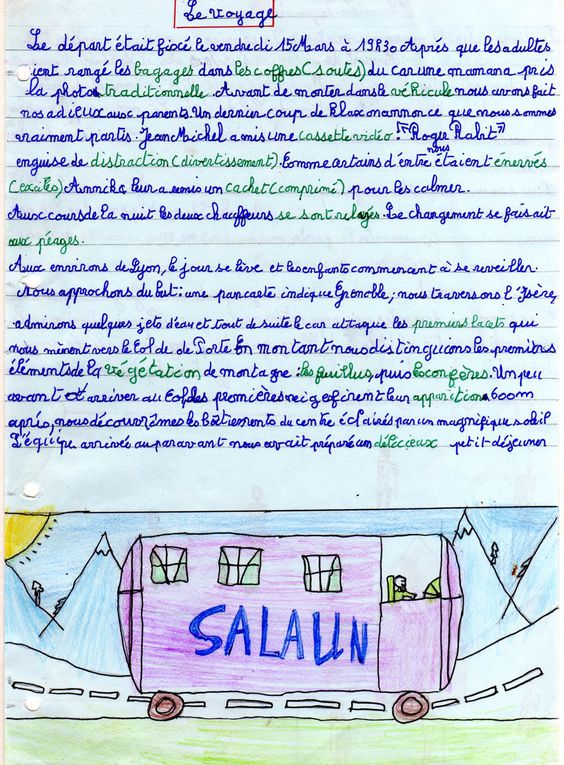 Le voyage
Le départ était fixé le vendredi 15 Mars à 19h30 Après que les adultes
aient rangé les bagages dans les coffres (soutes) du car une maman a pris
la photo traditionnelle. Avant de monter dans le véhicule nous avons fait
nos adieux aux parents. Un dernier coup de klaxon annonce que nous sommes
vraiment partis. Jean Michel a mis une cassette vidéo : "Roger Rabit"
en guise de distraction (divertissement). Comme certains d'entre nous étaient énervés
(excités) Annika leur a remis un cachet (comprimé) pour les calmer.
Aux cours de la nuit les deux chauffeurs se sont relayés. Le changement se faisait
aux péages.
Aux environs de Lyon, le jour se lève et les enfants commencent à se reveiller.
Nous approchons du but : une pancarte indique Grenoble ; nous traversons l'Isère,
admirons quelques jets d'eau et tout de suite le car attaque les premiers lacets qui
nous mènent vers le Col de Porte En montant nous distinguons les premiers
éléments de la végétation de montagne : les feuillus, puis les conifères. Un peu
avant d'arriver au Col des premières neiges firent leur apparition. 600m
après, nous découvrîmes les bâtiments du centre éclairés par un magnifique soleil
L'équipe arrivée auparavant nous avait préparé un délicieux petit déjeuner
SALAUN